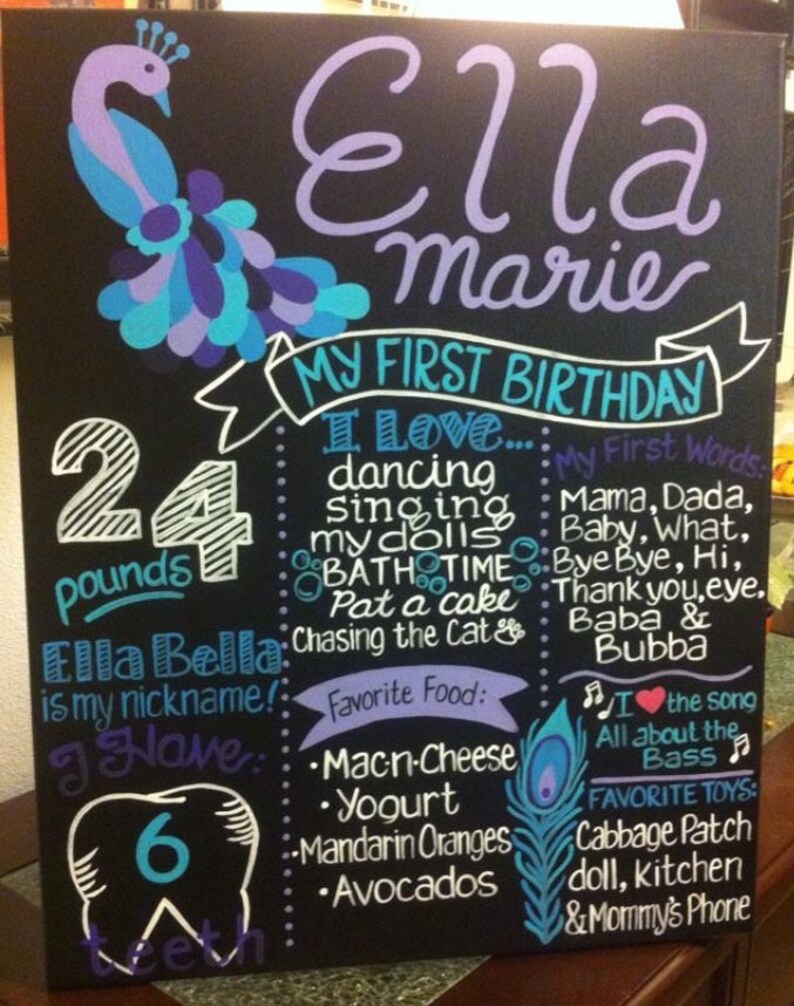 Ella
marie
MY FIRST BIRTHDAY
24
pounds
Ella Bella
is my nickname!
I Have:
6
teeth
I Love...
dancing
singing
my dolls
BATH TIME
Pat a cake
Chasing the Cat
Favorite Food:
• Mac-n-Cheese
• Yogurt
• Mandarin Oranges
• Avocados
My First Words:
Mama, Dada,
Baby, What,
Bye Bye, Hi,
Thank you, eye,
Baba &
Bubba
I ❤ the song
All about the
Bass
FAVORITE TOYS:
Cabbage Patch
doll, kitchen
& Mommy's Phone